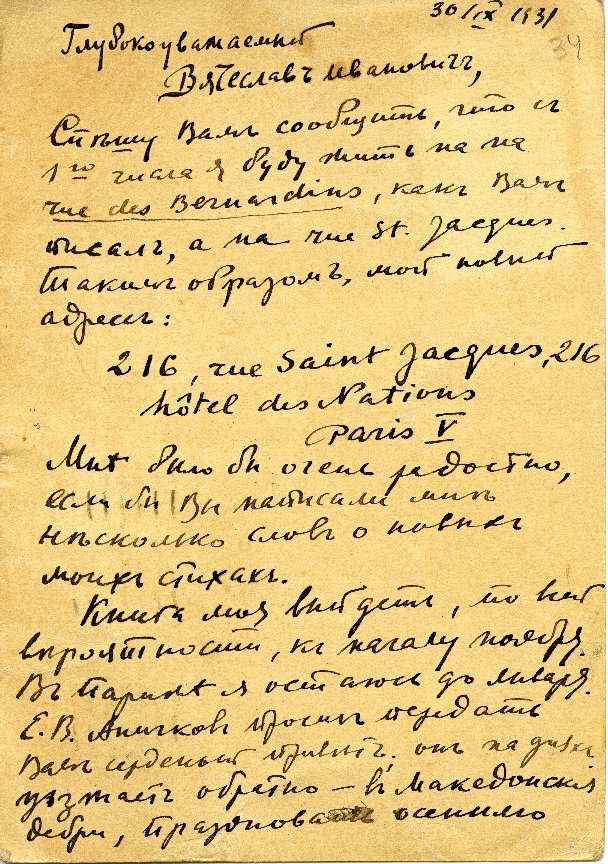 30/IX 1931
34
Глубокоуважаемый
Вячеславъ Ивановичъ,
Спѣшу Вамъ сообщить, что съ
1го числа я буду жить не на
rue des Bernardins, какъ Вамъ
писалъ, а на rue St. Jacques.
Такимъ образомъ, мой новый
адресъ:
216, rue Saint Jacques, 216
hôtel des Nations
Paris V
Мнѣ было бы очень радостно,
если бы Вы написали мнѣ
нѣсколько словъ о новыхъ
моихъ стихахъ.
Книга моя выйдетъ, по всей
вѣроятности, къ началу ноября.
Въ Парижѣ я остаюсь до января.
Е. В. Аничковъ проситъ передать
Вамъ сердечный привѣтъ; онъ на дняхъ
уѣзжаетъ обратно — въ Македонскія
дебри, праздновать осеннюю